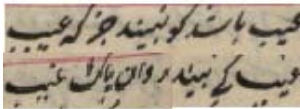 عیب باشد کو نبیند جز که عیب
عیب کی بیند روان پاک غیب